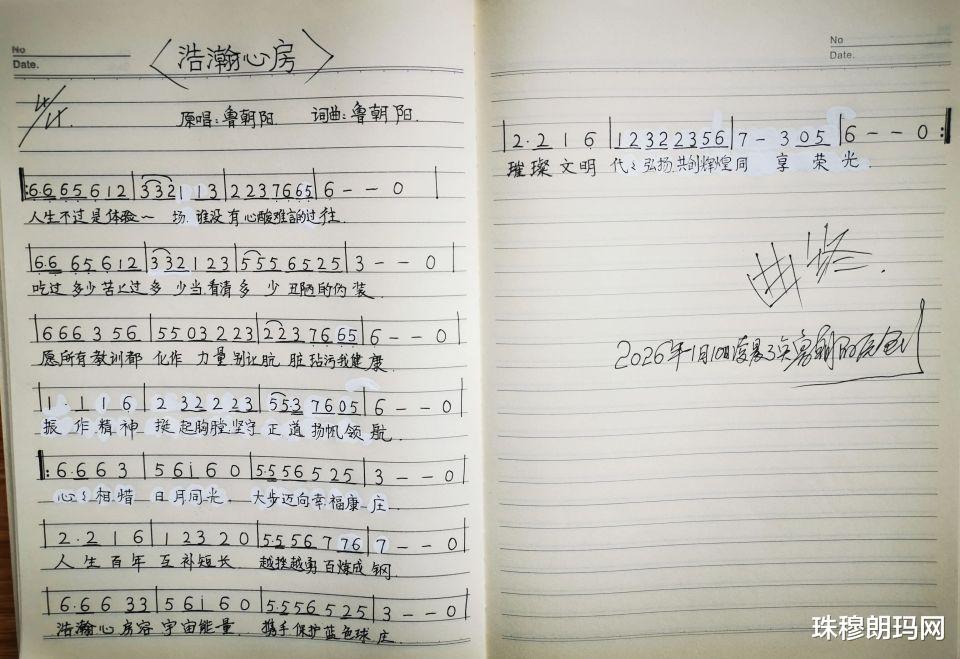 No
Date.
〈浩瀚心房〉
4/4
原唱:鲁朝阳 词曲:鲁朝阳
‖:6.6 6 5 6 1 2 | 3 3 2 1 1 3 | 2 2 3 7 6 6 5 | 6 - - 0 |
人生不过是体验~ 场 谁没有心酸难言的过往
| 6.6 6 5 6 1 2 | 3 3 2 1 2 3 | 5 5 5 6 5 2 5 | 3 - - 0 |
吃过 多少苦上过多 少当 看清多 少 丑陋的伪装
6 6 6 3 5 6 | 5 5 0 3 2 2 3 | 2 2 3 7 6 6 5 | 6 - - 0 |
愿所有教训都 化作 力量别让肮 脏玷污我健康
1. 1 1 6 | 2 3 2 2 2 3 | 5 5 3 7 6 0 5 | 6 - - 0 |
振作精神 挺起胸膛坚守 正道扬帆领航
‖: 6. 6 6 3 | 5 6 i 6 0 | 5.5 5 6 5 2 5 | 3 - - 0
心々相惜 日月同光, 大步迈向幸福康庄
2. 2 1 6 | 1 2 3 2 0 | 5.5 5 6 7 7 6 | 7 - - 0 |
人生百年 互补短长 越挫越勇百炼成钢
6.6 6 3 3 | 5 6 i 6 0 | 5.5 5 6 5 2 5 | 3 - - 0 |
浩瀚心房容宇宙能量 携手保护蓝色球庄
No
Date.
| 2. 2 1 6 | 1 2 3 2 2 3 5 6 | 7 - 3 0 5 | 6 - - 0 :‖
璀璨文明 代々弘扬共创辉煌同 享荣光
曲终.
2026年1月10日凌晨3点鲁朝阳
珠穆朗玛网